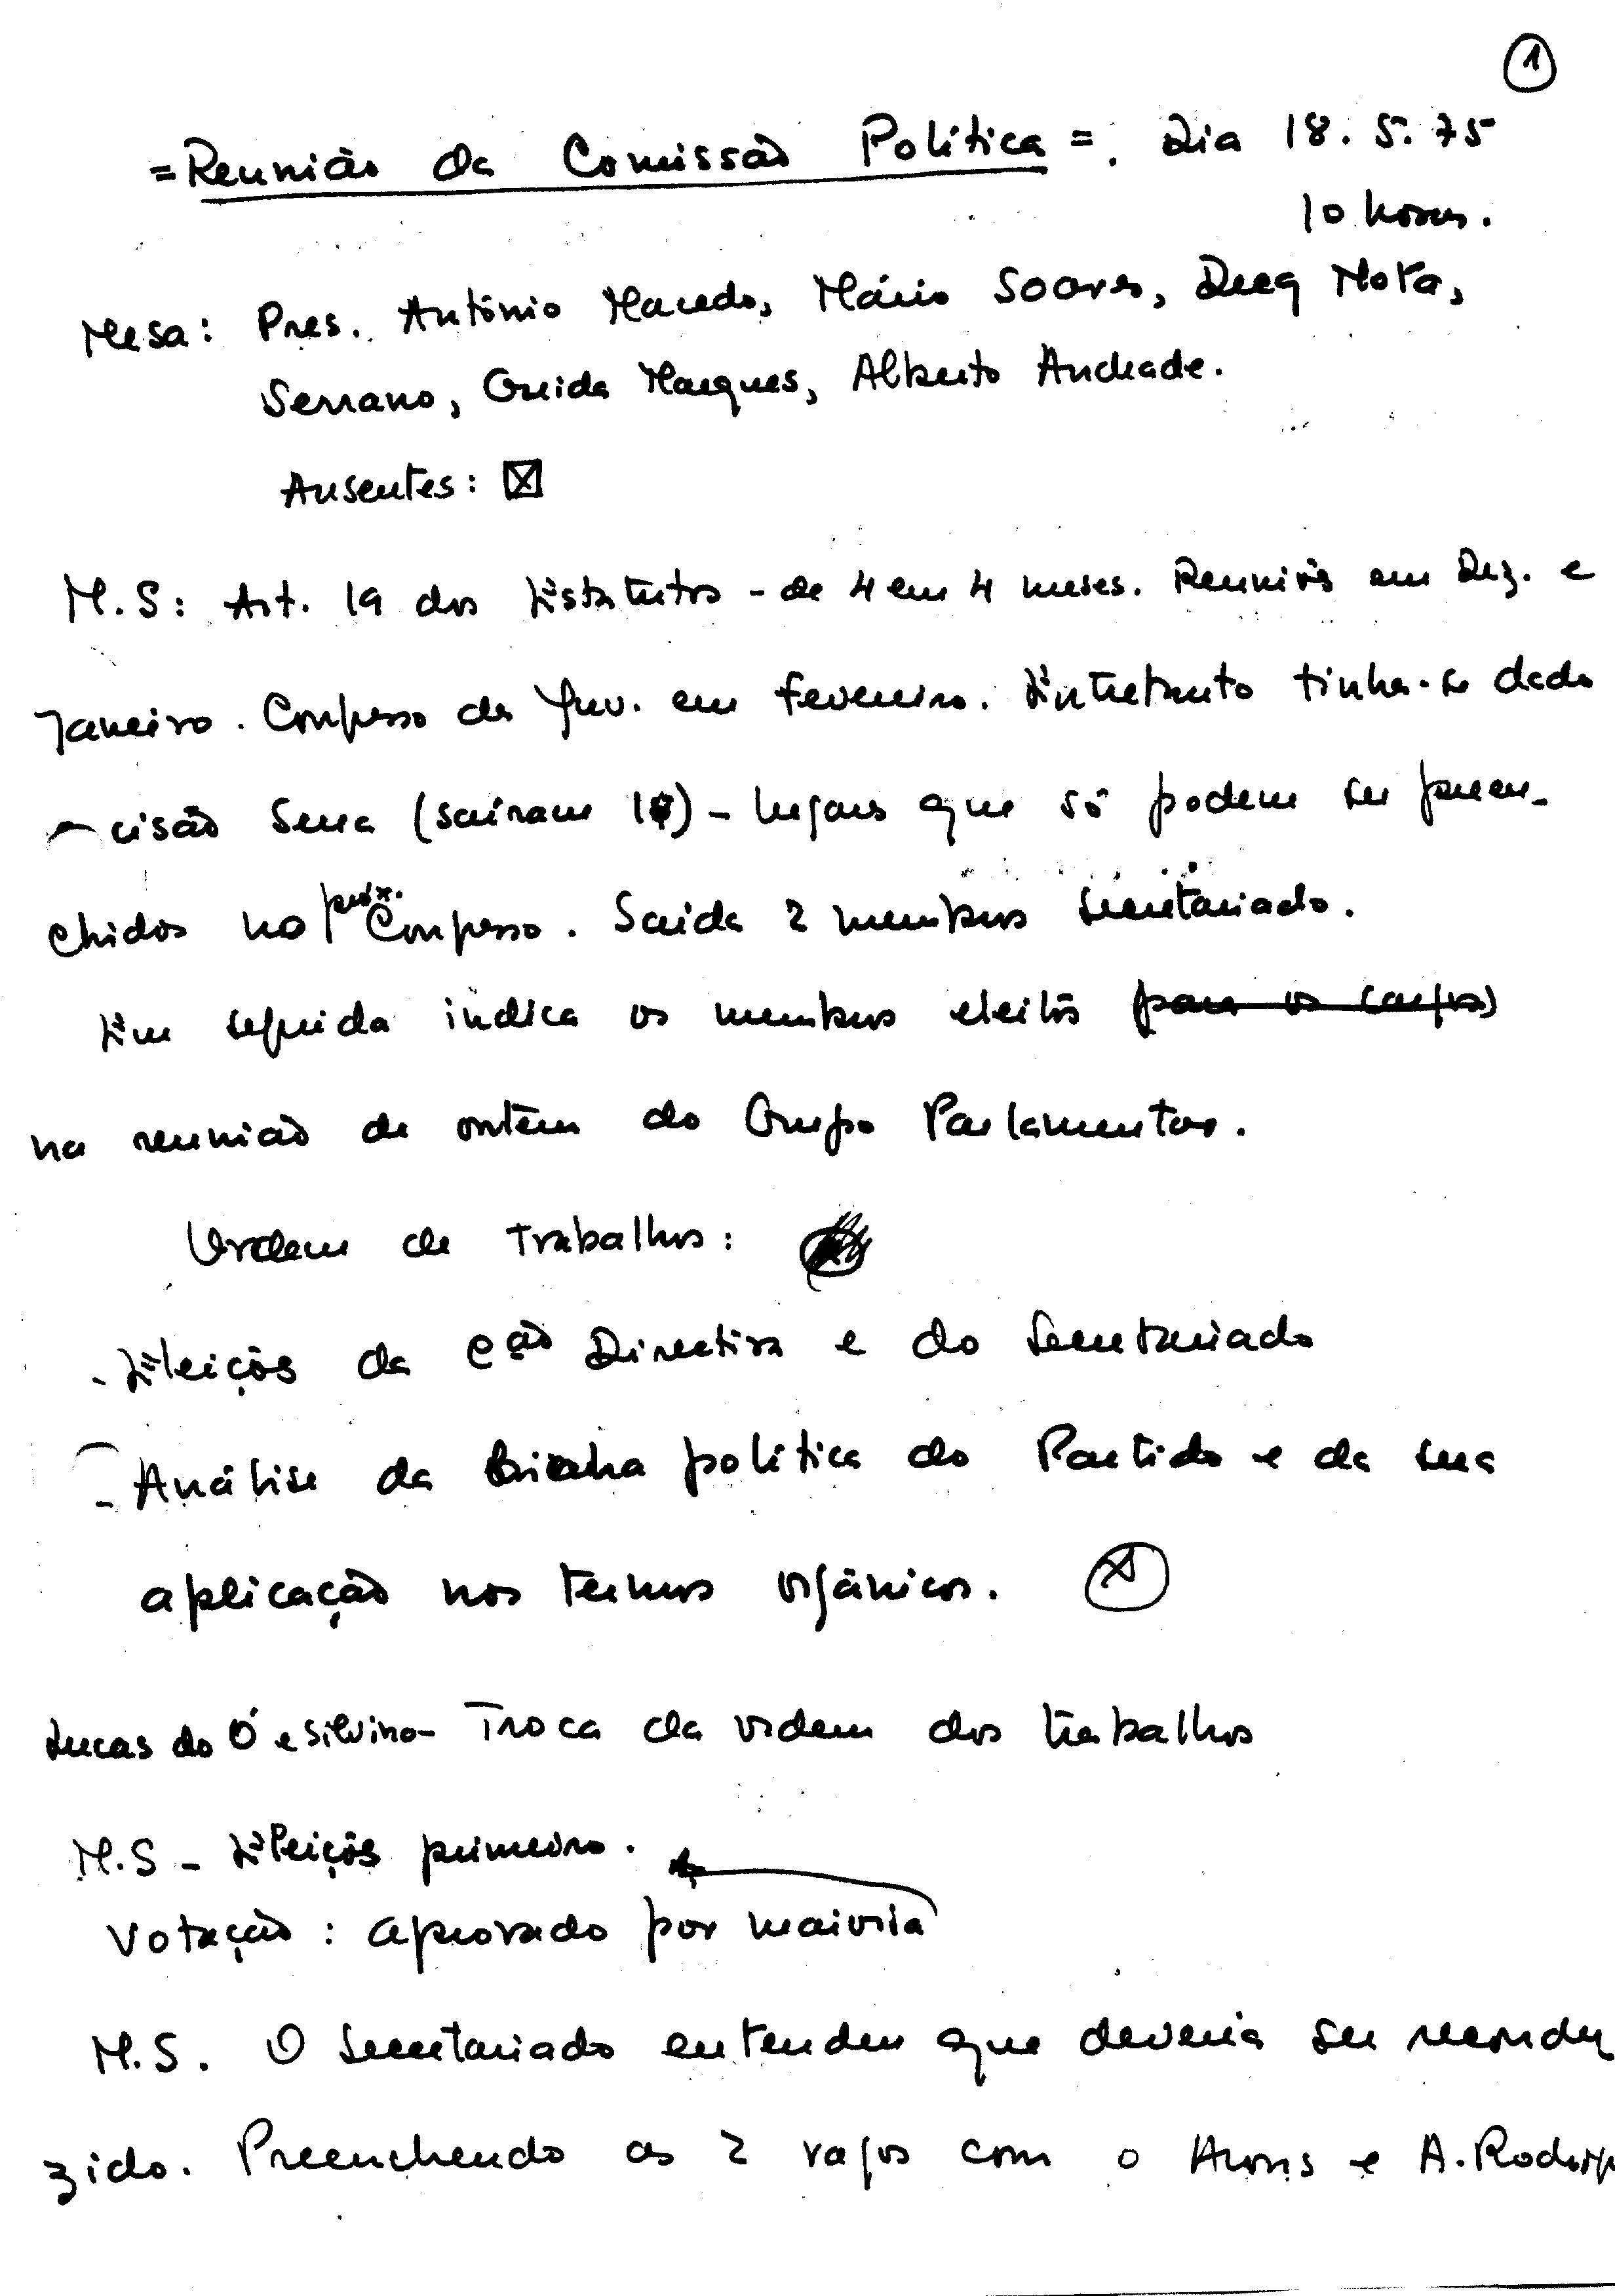 1
= Reunião da Comissão Política = . Dia 18.5.75
10 horas.
Mesa: Pres. António Macedo, Mário Soares, Mota,
Serrano, Guida Marques, Alberto Andrade.
Ausentes:
M.S: Art. 19 dos Estatutos - de 4 em 4 meses. Reuniões em Dez. e
Janeiro. Congresso da Juv. em Fevereiro. Entretanto tinha-se dado
cisão Serra (saíram 10) - lugares que só podem ser preen-
chidos no próx. Congresso. Saída 2 membros secretariado.
Em seguida indica os membros eleitos para os cargos
na reunião de ontem do Grupo Parlamentar.
Ordem de Trabalhos:
- Eleição da Cção Directiva e do Secretariado
- Análise da linha política do Partido e da sua
aplicação nos termos orgânicos.
Lucas do Ó e Silvino - Troca da ordem dos trabalhos
M.S - Eleição primeiro.
Votação: aprovado por maioria
M.S. O Secretariado entendeu que deveria ser recondu
zido. Preenchendo as 2 vagas com o Arons e A. Rodrig